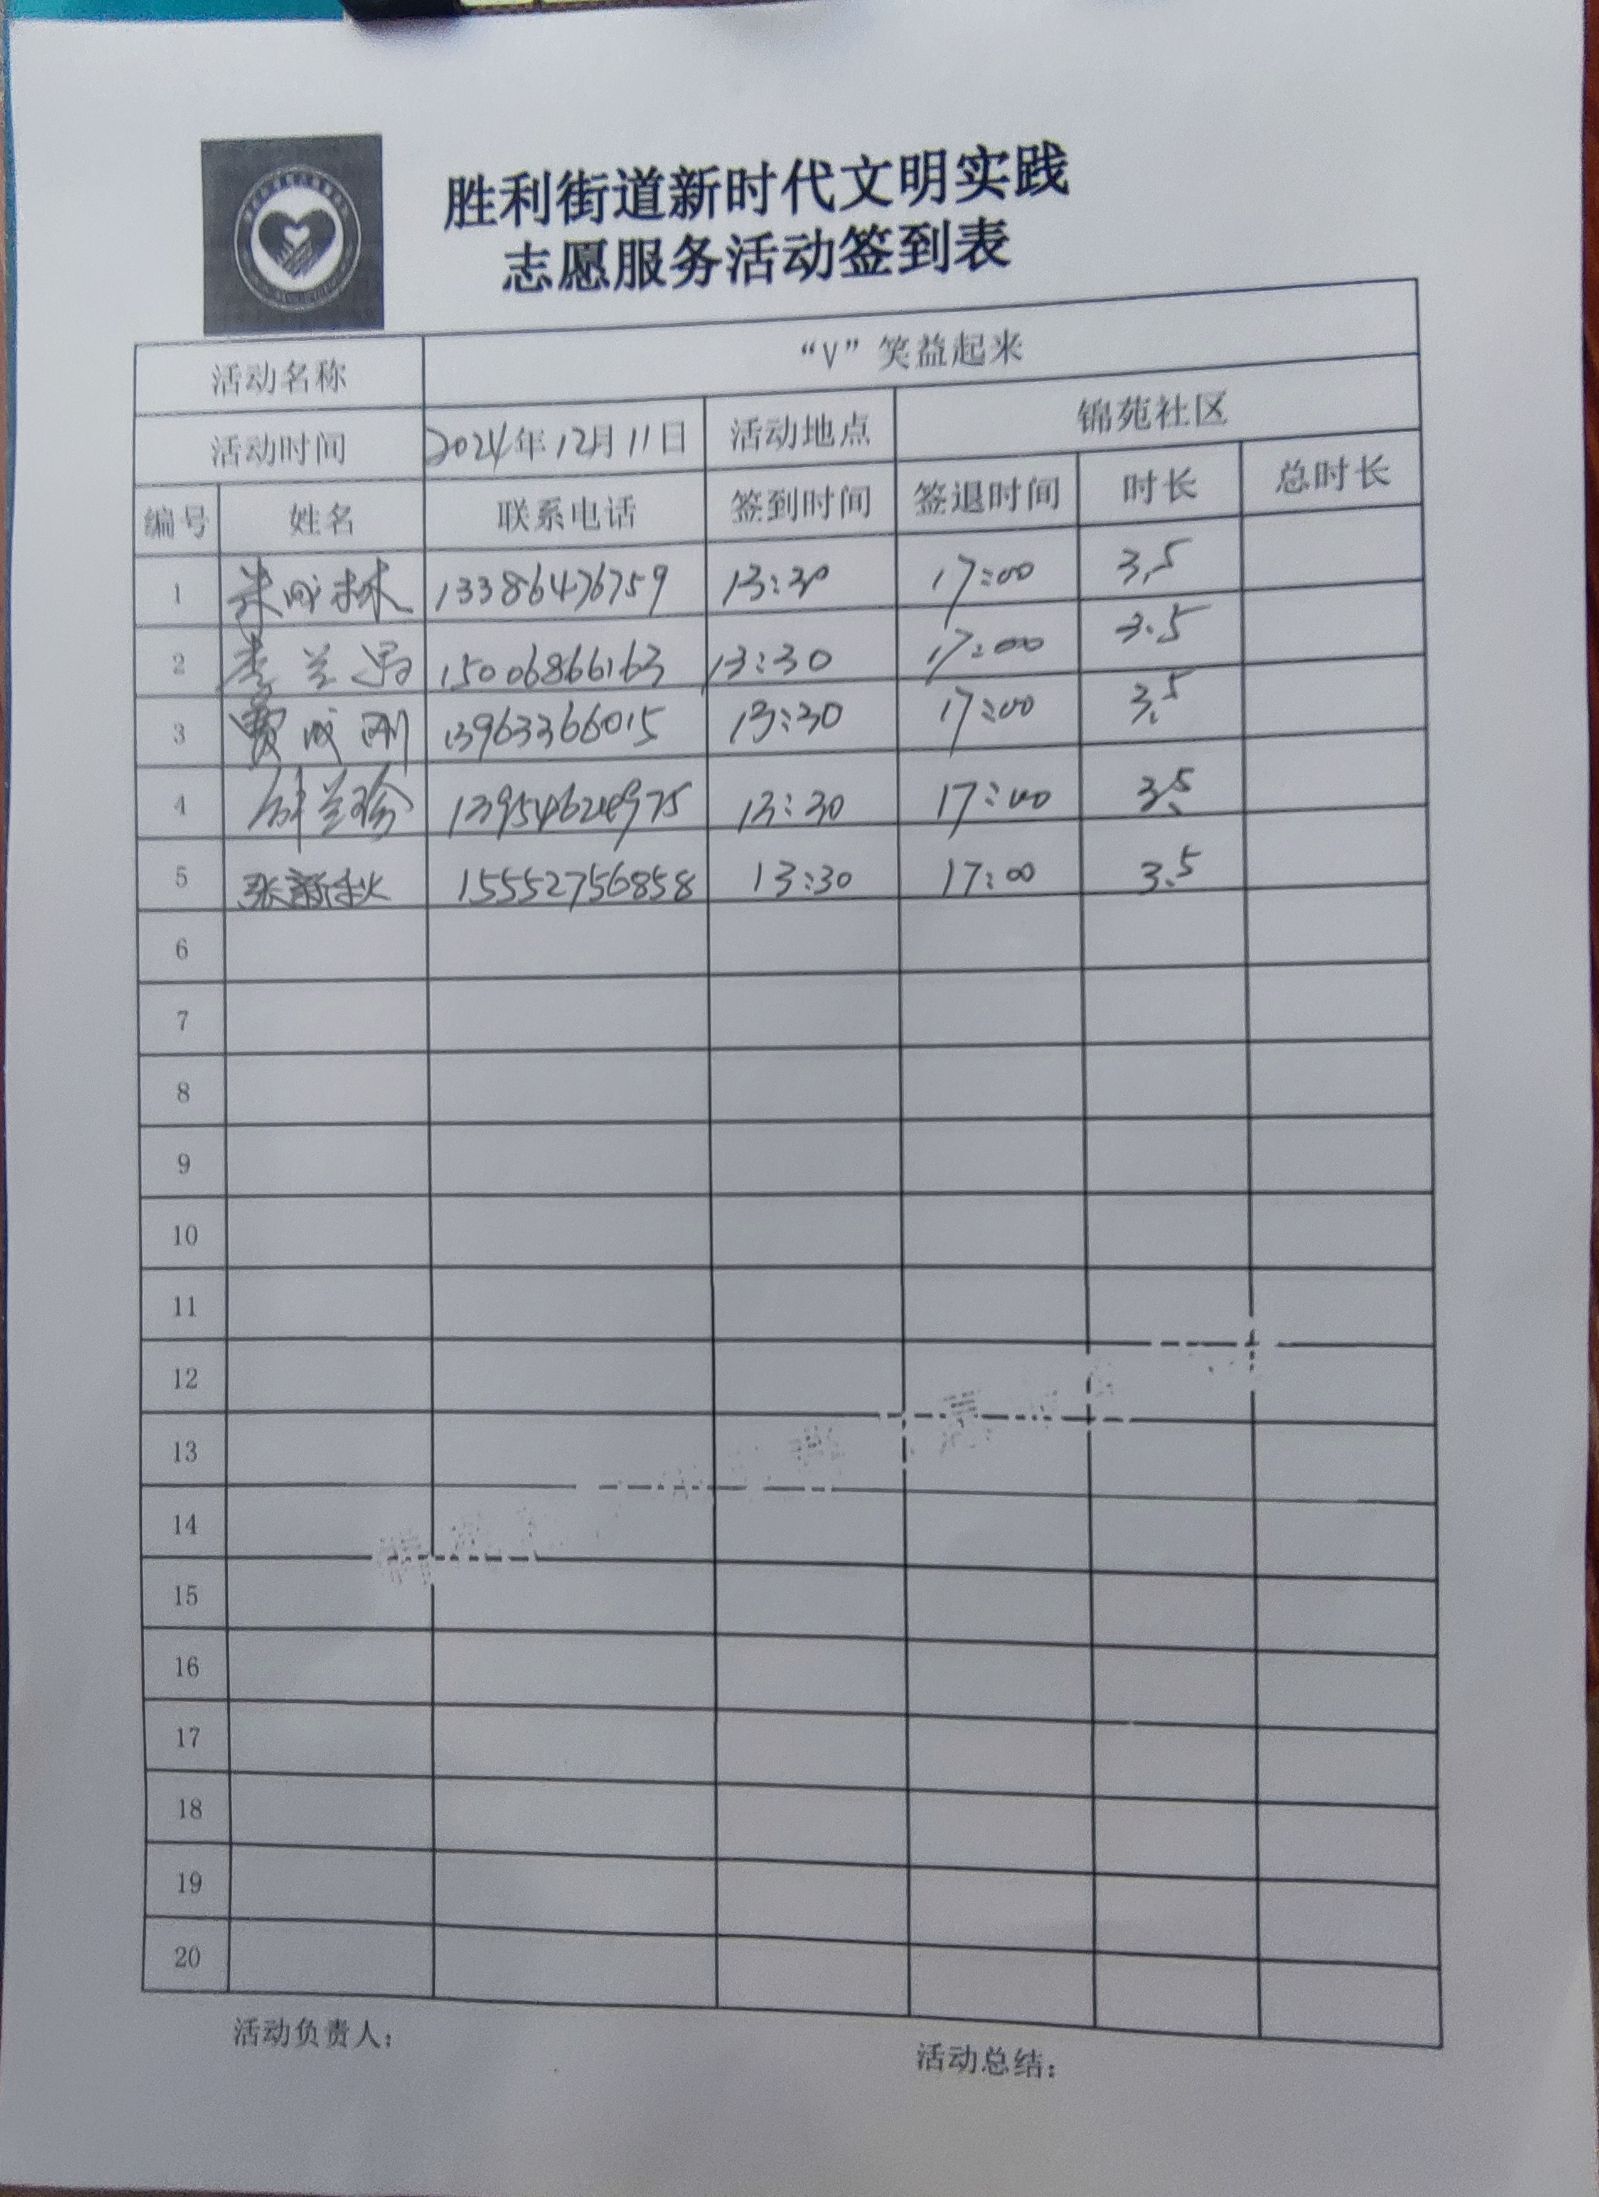 胜利街道新时代文明实践
志愿服务活动签到表
活动名称 “V”笑益起来
活动时间 2024年12月11日 活动地点 锦苑社区
编号 姓名 联系电话 签到时间 签退时间 时长 总时长
1 朱成林 13386476759 13:30 17:00 3.5
2 李兰 15006866163 13:30 17:00 3.5
3 贾成刚 13963366015 13:30 17:00 3.5
4 兰珍 13954624975 13:30 17:00 3.5
5 张新秋 15552756858 13:30 17:00 3.5
6
7
8
9
10
11
12
13
14
15
16
17
18
19
20
活动负责人: 活动总结: